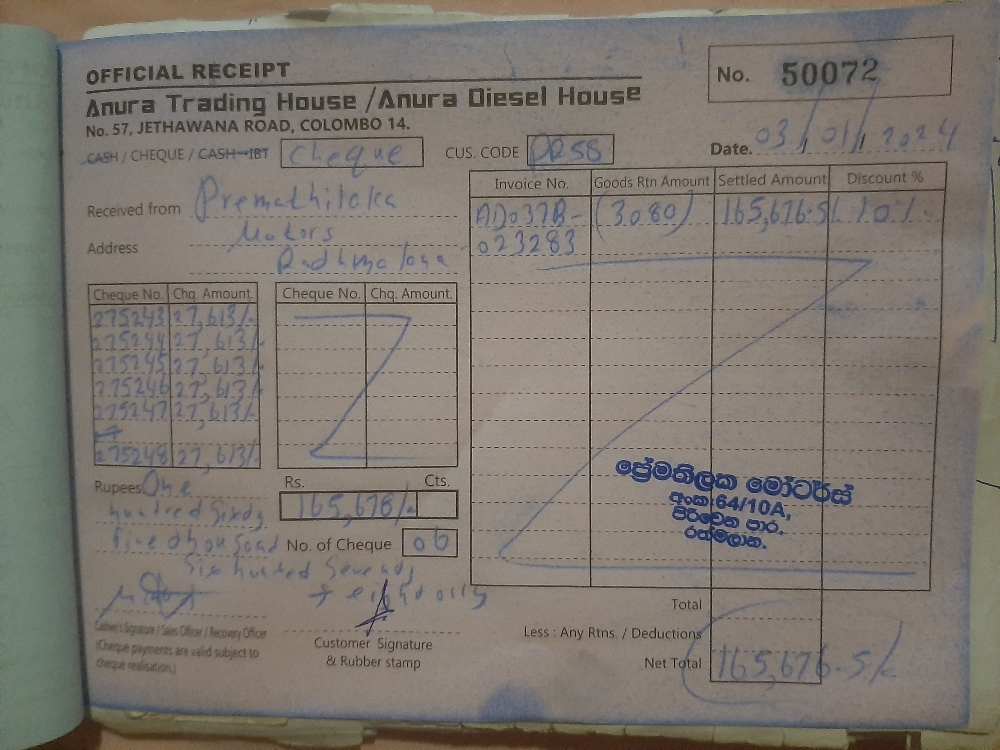 OFFICIAL RECEIPT
No. 50072
Anura Trading House /Anura Diesel House
No. 57, JETHAWANA ROAD, COLOMBO 14.
CASH / CHEQUE / CASH-IBT Cheque CUS. CODE PR58 Date. 03/01/2024
Received from Premathiloka
Address Motors
Invoice No. Goods Rtn Amount Settled Amount Discount %
AD037B- (3080) 165,676.5/ 10%.
023283
Cheque No. Chq. Amount. Cheque No. Chq. Amount.
275243 27,613/-
275244 27,613/-
275245 27,613/-
275246 27,613/-
275247 27,613/-
275248 27,613/-
ප්‍රේමතිලක මෝටර්ස්
අංක 64/10A,
පිරිවෙන පාර,
රත්මලාන.
Rupees One Rs. Cts.
hundred Sixty 165,678/-
five thousand No. of Cheque 06
Six hundred Seventy
+ eight only
Cashier's Signature / Sales Officer / Recovery Officer
(Cheque payments are valid subject to
cheque realisation.)
Customer Signature
& Rubber stamp
Total
Less : Any Rtns. / Deductions
Net Total 165,676-5/